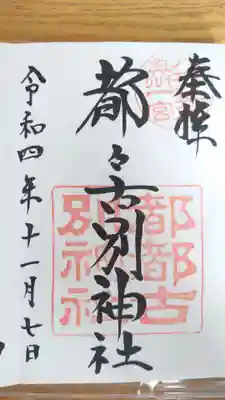 奉拝
都々古別神社
都都古
別神社
令和四年十一月七日